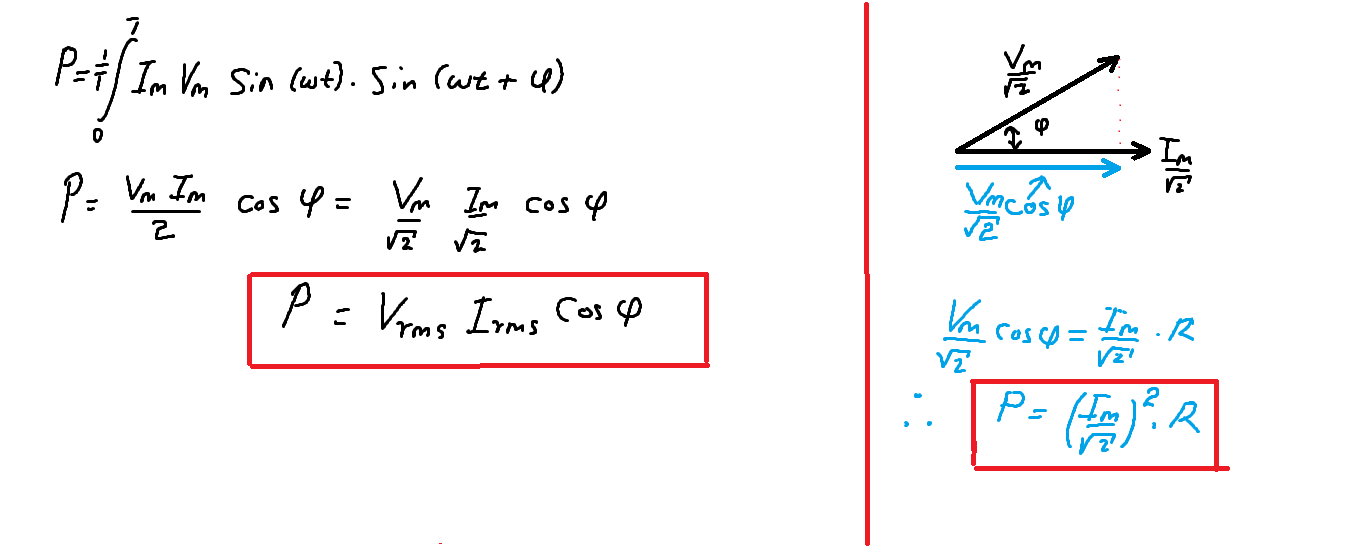 P = 1/T ∫₀ᵀ Iₘ Vₘ Sin (ωt) . Sin (ωt + φ)
P = Vₘ Iₘ / 2 cos φ = Vₘ/√2 Iₘ/√2 cos φ
P = Vrms Irms Cos φ
Vₘ/√2
φ
Iₘ/√2
Vₘ/√2 cos φ
Vₘ/√2 cos φ = Iₘ/√2 . R
∴ P = (Iₘ/√2)² . R